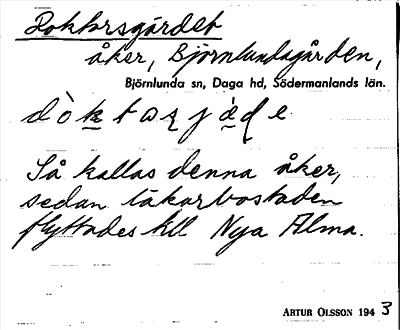 Doktorsgärdet
åker, Björnlundagården,
Björnlunda sn, Daga hd, Södermanlands län.
dòktaʂjàḍe
Så kallas denna åker,
sedan läkarbostaden
flyttades till Nya Alma.
ARTUR OLSSON 1943